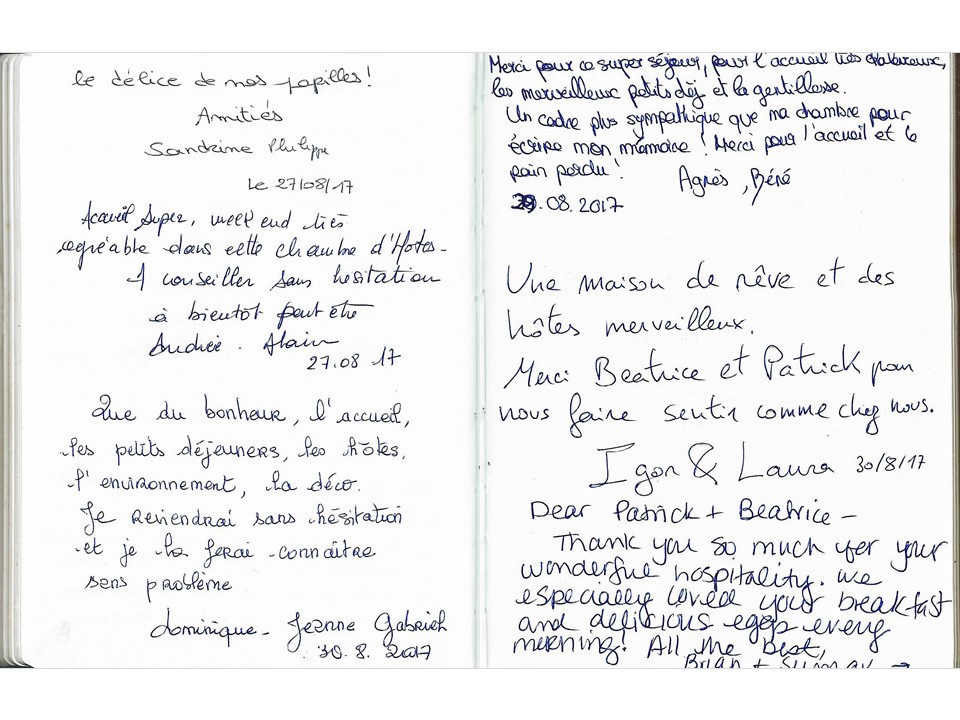 le délice de nos papilles!
Amitiés
Sandrine Philippe
Le 27/08/17
Accueil Super, week end très
agréable dans cette chambre d'Hotes.
A conseiller sans hésitation
à bientôt peut être
Andrée . Alain
27.08 17
Que du bonheur, l'accueil,
les petits déjeuners, les hôtes,
l'environnement, la déco.
Je reviendrai sans hésitation
et je la ferai connaître
sans problème
dominique - Jeanne Gabriel
30. 8. 2017
Merci pour ce super séjour, pour l'accueil très chaleureux,
les merveilleux petits déj et la gentillesse.
Un cadre plus sympathique que ma chambre pour
écrire mon mémoire ! Merci pour l'accueil et le
pain perdu !
Agnès , Béné
.08.2017
Une maison de rêve et des
hôtes merveilleux.
Merci Beatrice et Patrick pour
nous faire sentir comme chez nous.
Igor & Laura 30/8/17
Dear Patrick + Beatrice -
Thank you so much for your
wonderful hospitality. We
especially loved your breakfast
and delicious eggs every
morning! All the best,
Brian +